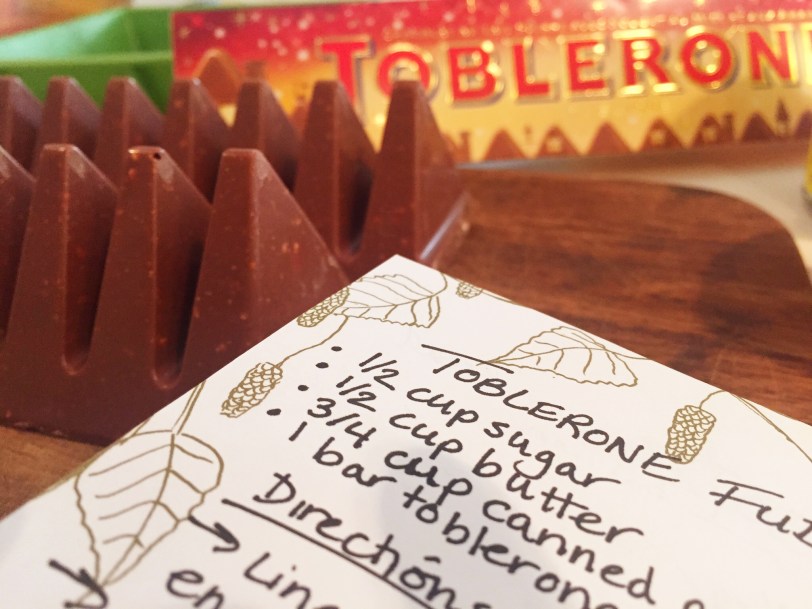 TOBLERONE
TOBLERONE
• 1/2 cup sugar
• 1/2 cup butter
• 3/4 cup canned
1 bar toblerone
Directions
→ Line